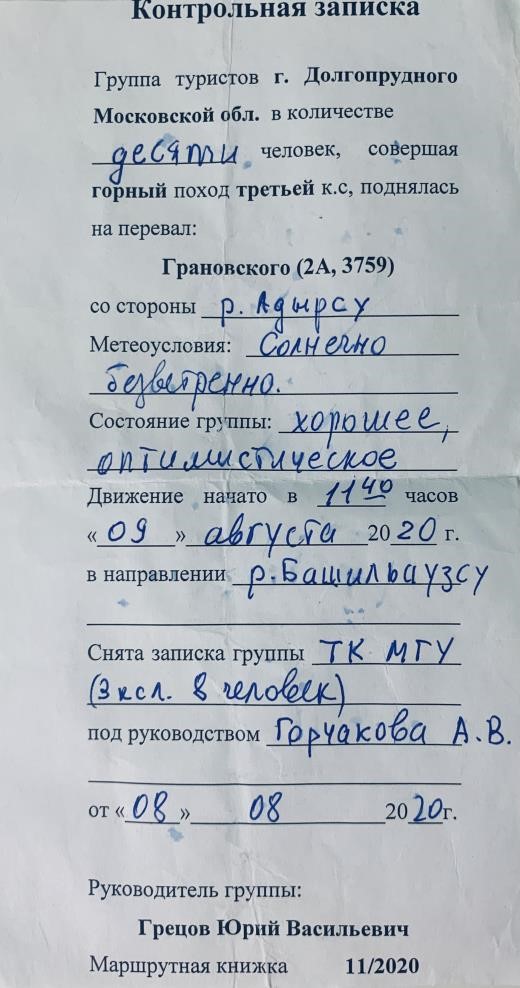 Контрольная записка
Группа туристов г. Долгопрудного
Московской обл. в количестве
десяти человек, совершая
горный поход третьей к.с, поднялась
на перевал:
Грановского (2А, 3759)
со стороны р. Адырсу
Метеоусловия: Солнечно
безветренно.
Состояние группы: хорошее,
оптимистическое
Движение начато в 11 40 часов
«09» августа 2020 г.
в направлении р. Башильаузсу
Снята записка группы ТК МГУ
(3 ксл. 8 человек)
под руководством Горчакова А.В.
от «08» 08 2020г.
Руководитель группы:
Грецов Юрий Васильевич
Маршрутная книжка 11/2020